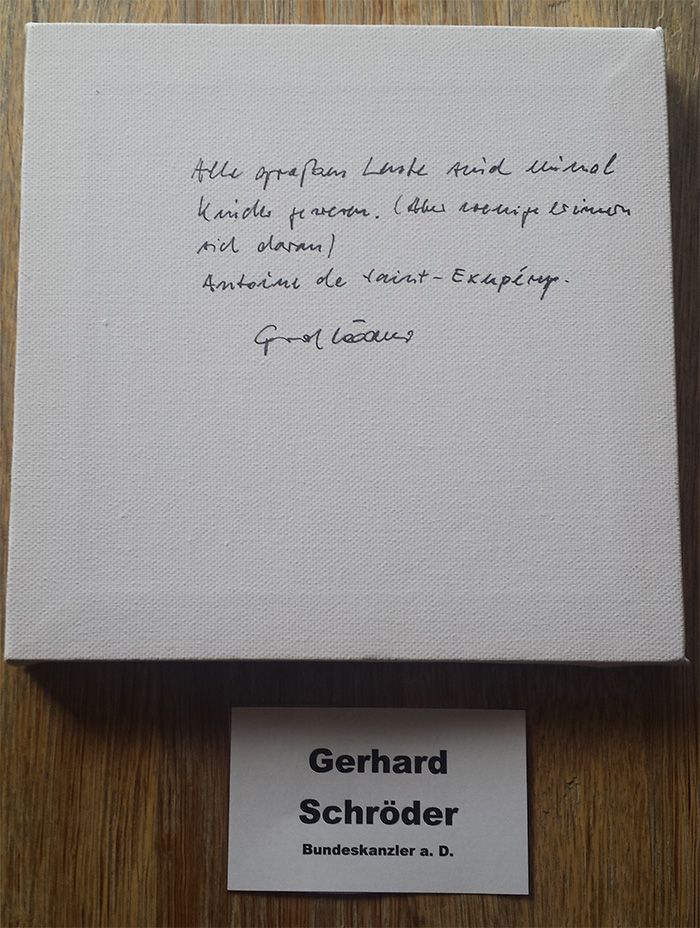 Alle großen Leute sind einmal
Kinder gewesen. (Aber wenige erinnern
sich daran)
Antoine de Saint-Exupéry.
Gerhard
Schröder
Bundeskanzler a. D.